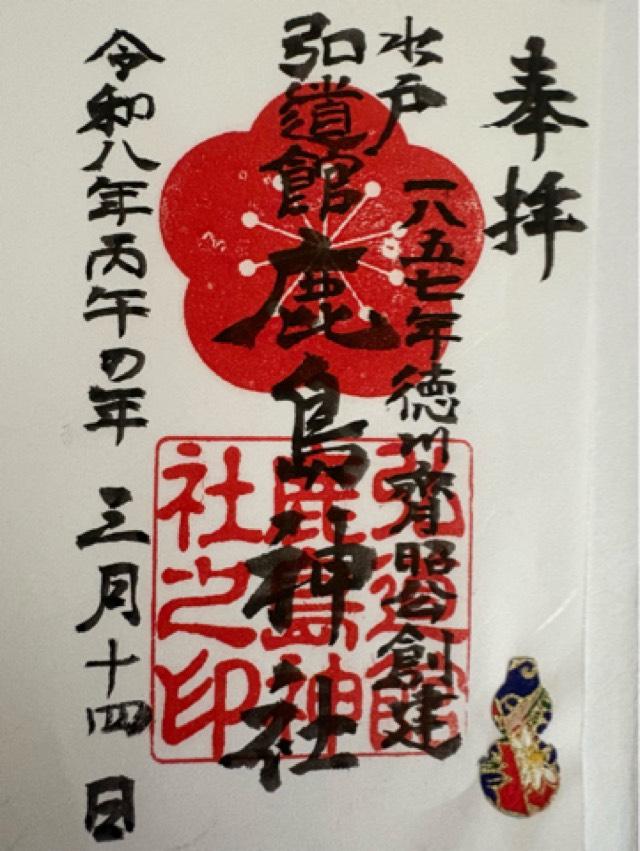 奉拝
水戸
一八五七年徳川齊昭公創建
弘道館
鹿島神社
令和八年丙午の年 三月十四日
弘道館
鹿島神
社之印